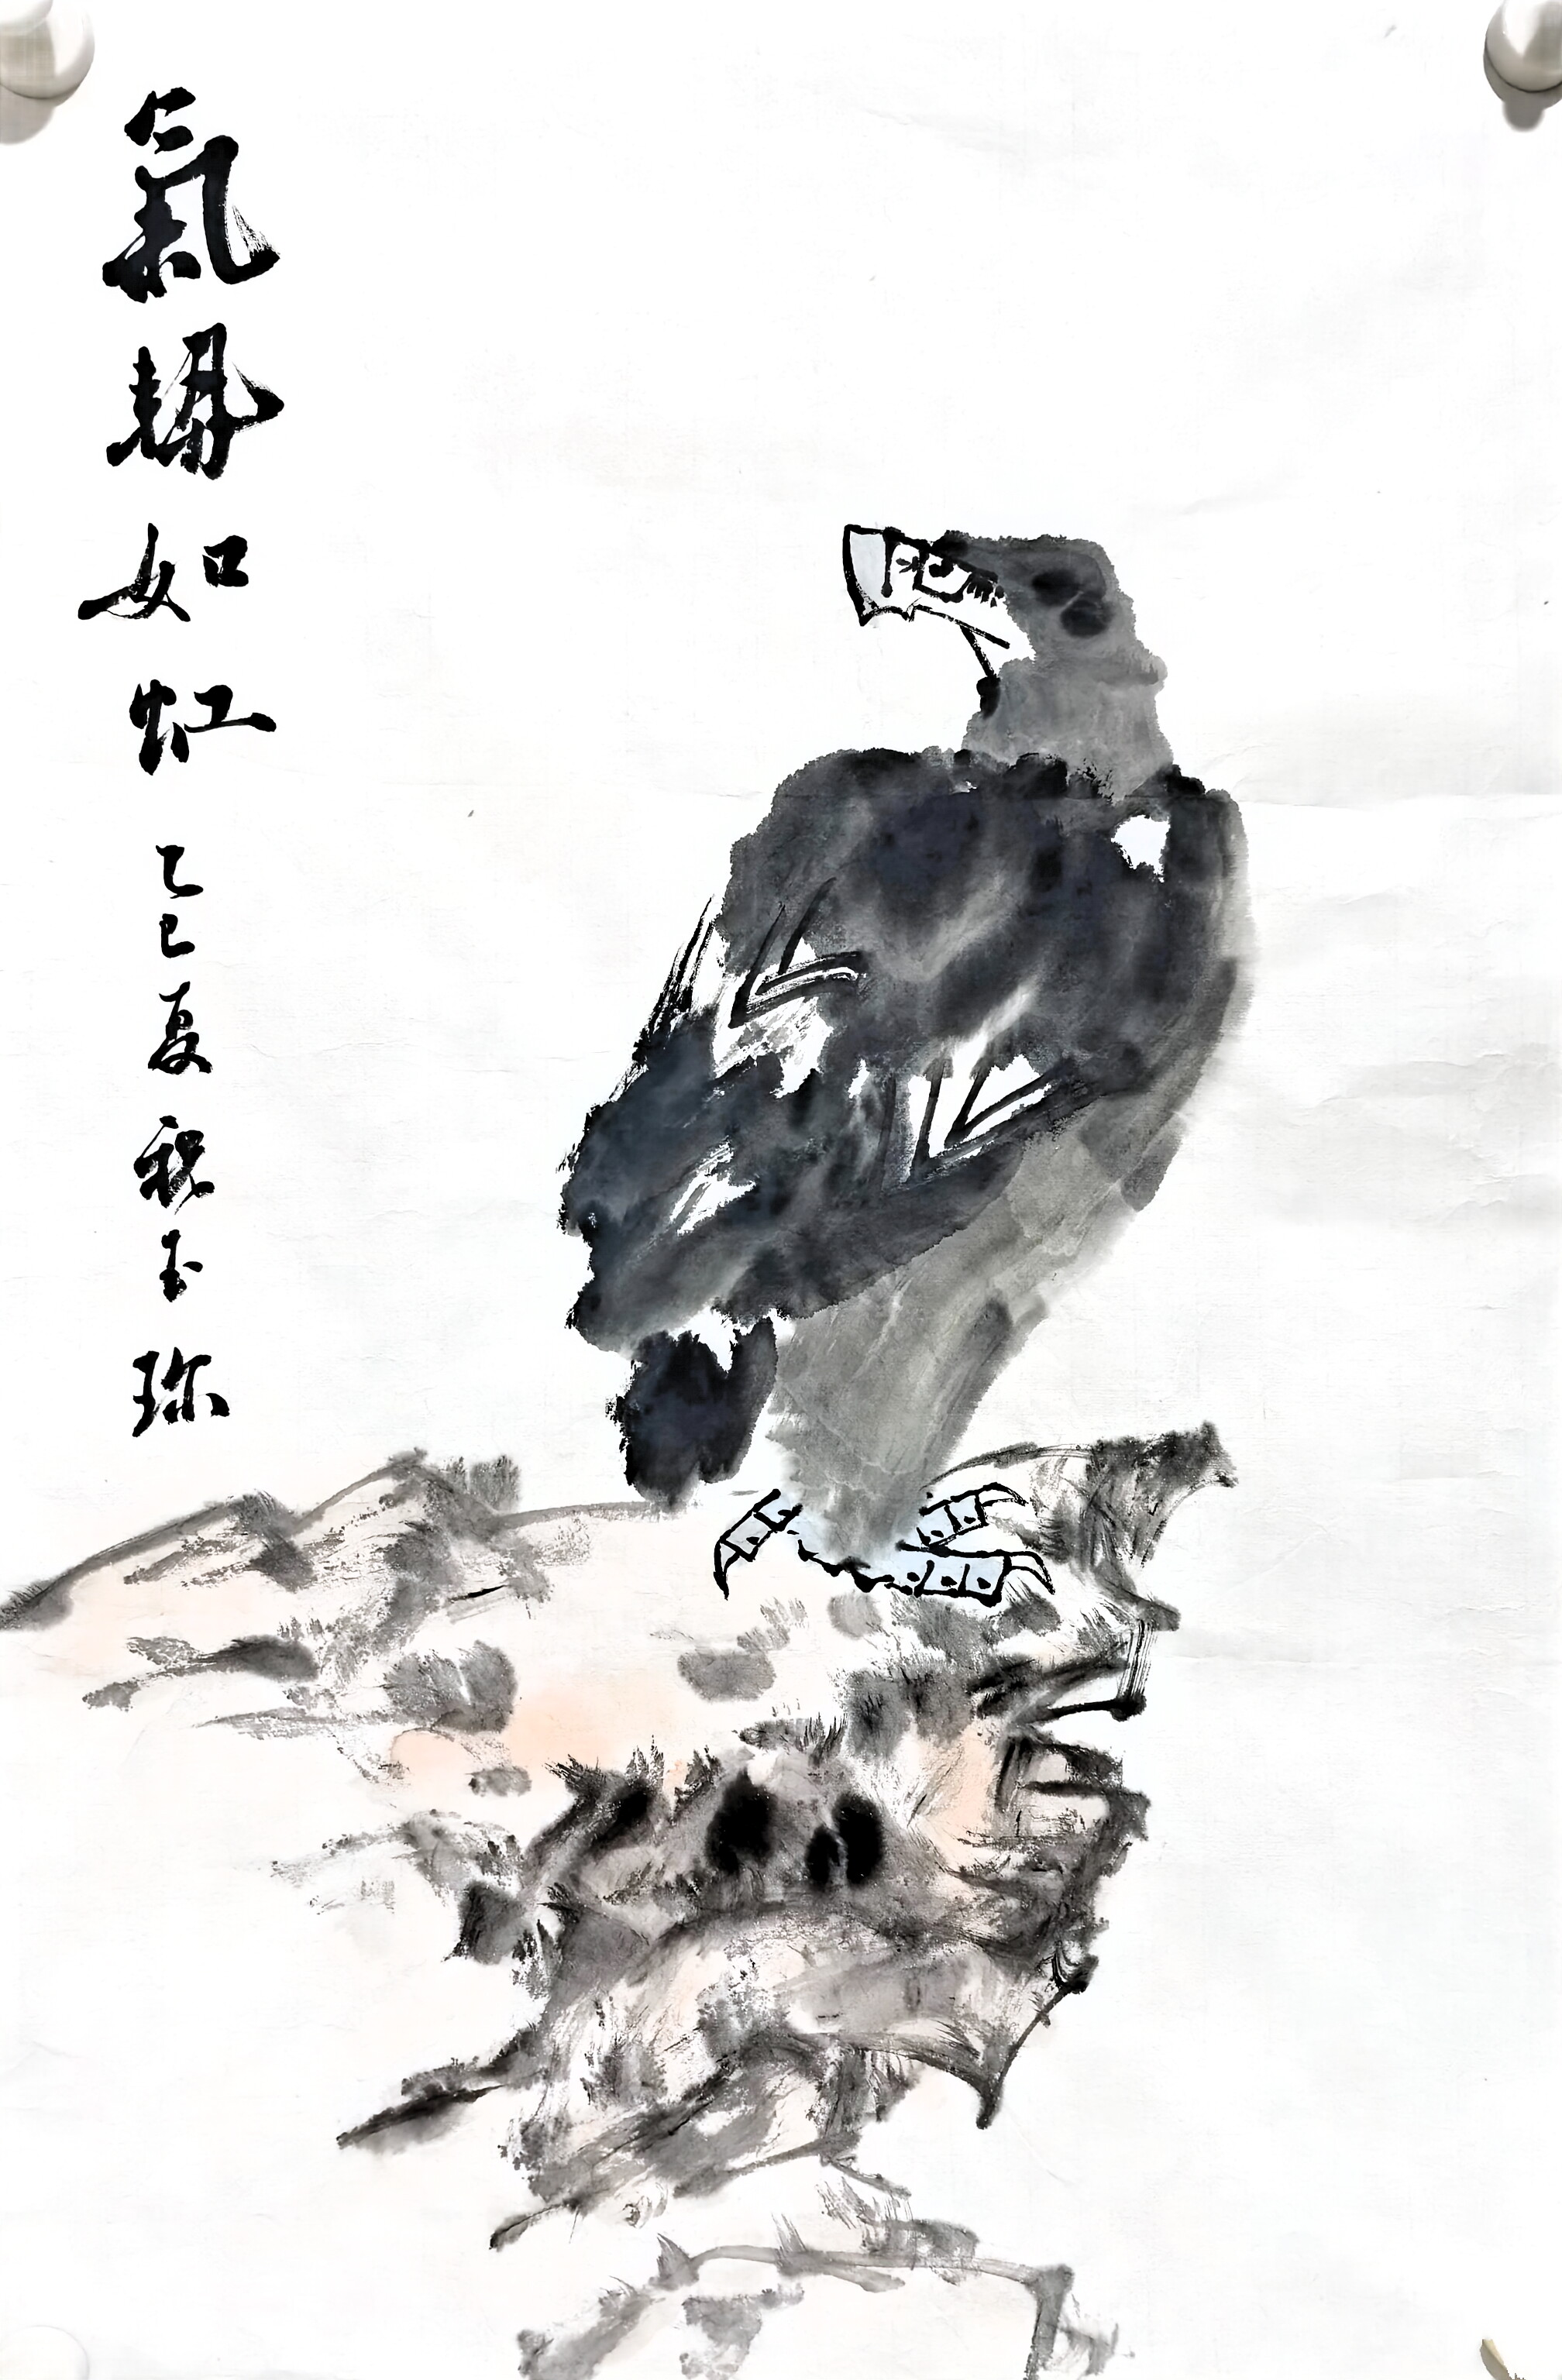 氣勢如虹乙巳夏祝玉珎